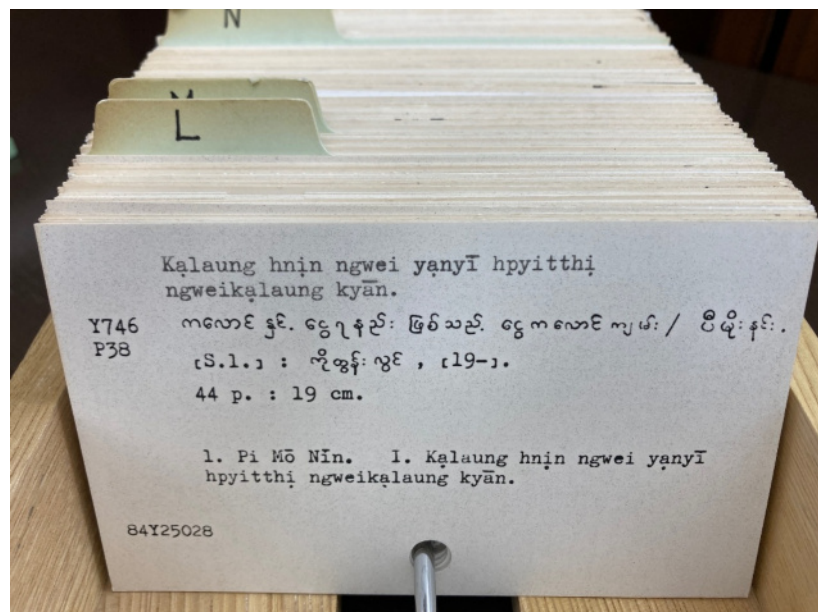 N
M
L
Kạlaung hnịn ngwei yạnyī hpyitthị
ngweikạlaung kyān.
Y746 ကလောင် နှင့် ငွေရနည်း ဖြစ်သည့် ငွေကလောင်ကျမ်း / ပီမိုးနင်း.
P38
[S.l.] : ကိုထွန်းလွင် , [19-].
44 p. : 19 cm.
1. Pi Mō Nīn. I. Kạlaung hnịn ngwei yạnyī
hpyitthị ngweikạlaung kyān.
84Y25028